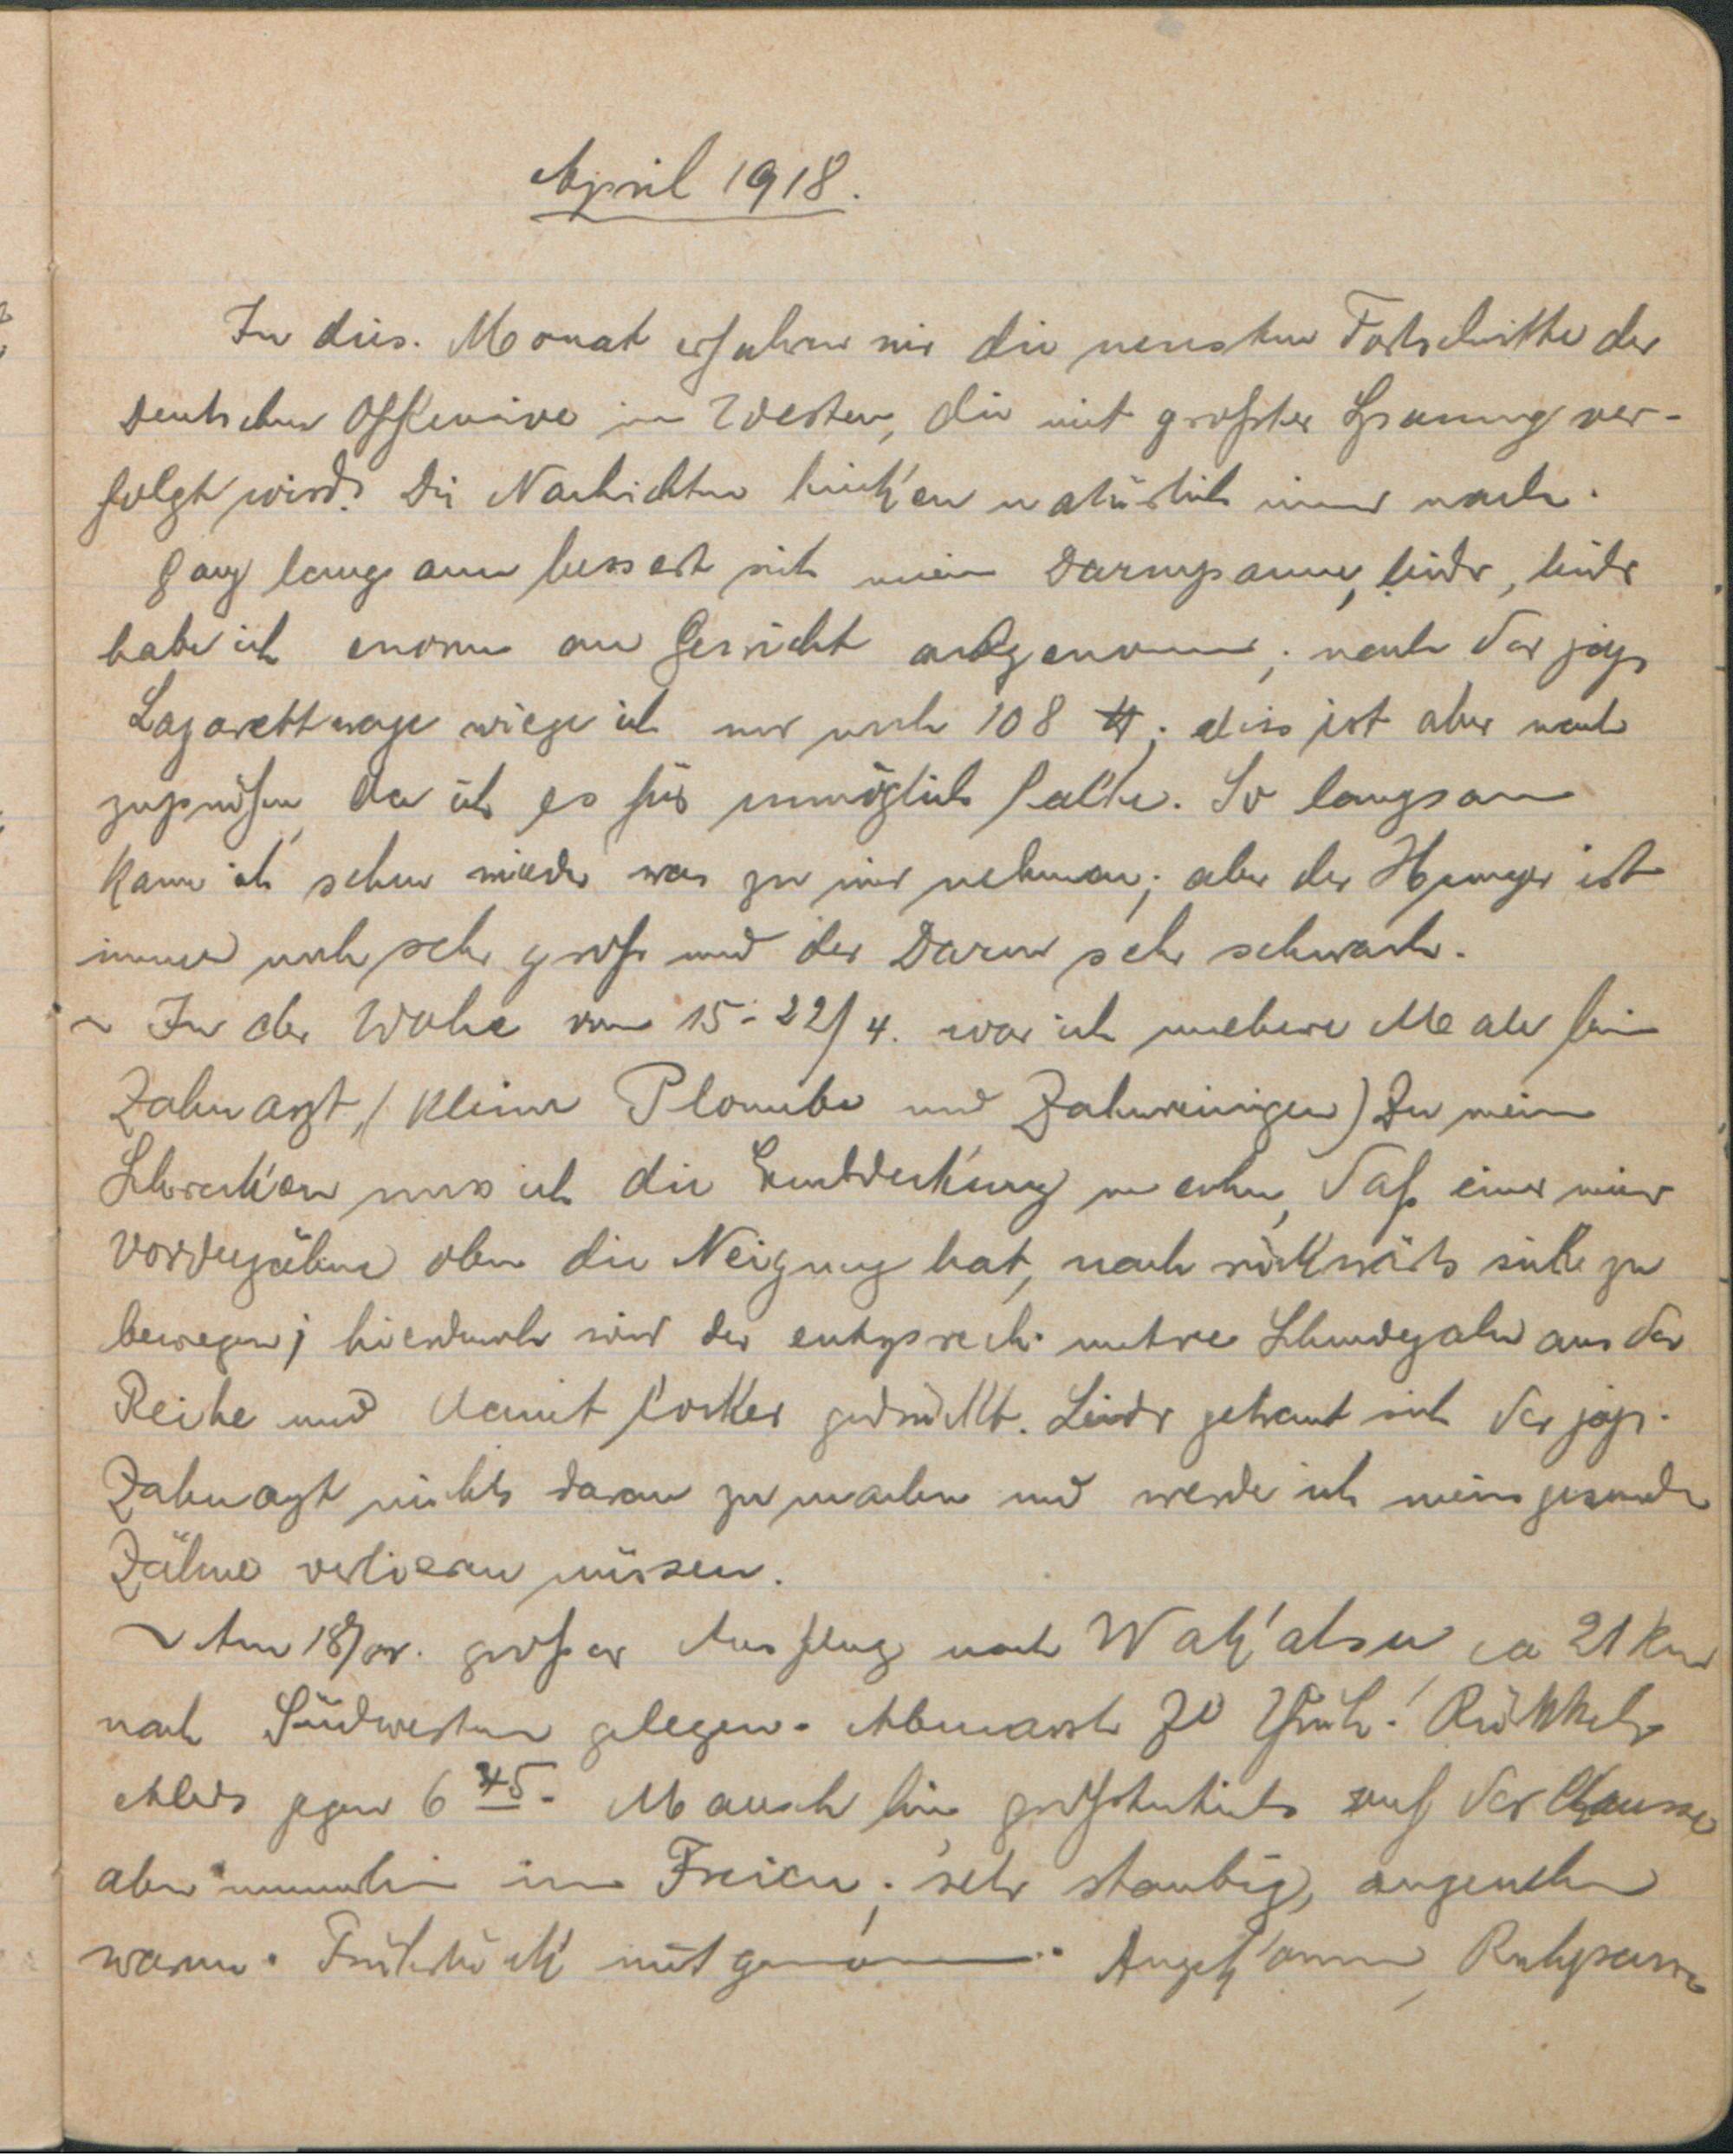 April 1918.
In dies. Monat erfahren wir die neusten Fortschritte der
Deutschen Offensive im Westen, die mit großter Spannung ver-
folgt wird. Die Nachrichten hinken natürlich immer nach.
Ganz langsam bessert sich mein Darm, leider, leider
habe ich enorm an Gewicht abgenommen; nach der jap.
Lazarettwage wiege ich nur noch 108 ℔; dies ist aber noch
zuprüfen, da ich es für unmöglich halte. So langsam
kann ich schon wieder was zu mir nehmen; aber der Hunger ist
immer noch sehr groß und der Darm sehr schwach.
~ In der Woche vom 15-22/4. war ich mehere Male beim
Zahnarzt, (kleine Plombe und Zahnreinigen) Zu mein
Schrecken mus ich die Entdeckung machen, daß einer meiner
Vorderzähne oben die Neigung hat, nach rückwärts sich zu
bewegen; hierdurch wird der entsprech. untere Schneidezahn aus der
Reihe und damit locker gedrückt. Leider getraut sich der jap.
Zahnarzt nichts daran zu machen und werde ich meine gesunden
Zähne verlieren müssen.
~ Am 18/IV. großer Ausflug nach Wak'atsu ca 21 km
nach Südwesten gelegen. Abmarsch 7º früh! Rückkehr
Abends gegen 6 45. Marsch hin großtenteils auf der Chaussee
aber immerhin im Freien; sehr staubig, angenehm
warm. Frühstück mitgenommen. Angekommen, Ruhepause